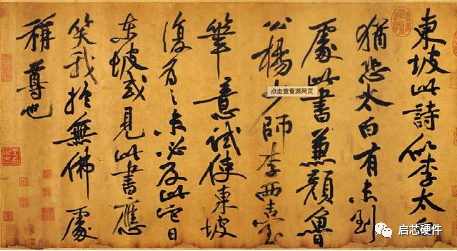 東坡此詩似李太白
猶恐太白有未到
處此書兼顏魯
公楊少師李西臺
筆意試使東坡
復為之未必及此它日
東坡或見此書應
笑我於無佛處
稱尊也
点击查看源网页
启芯硬件